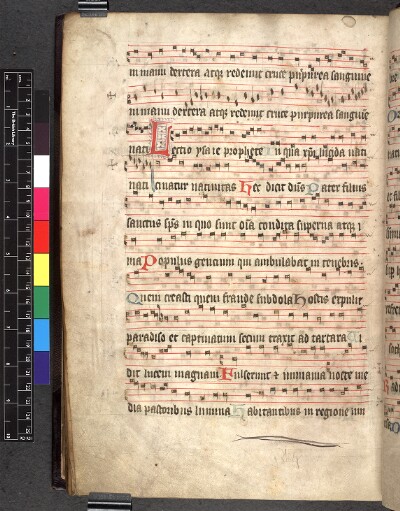 in manu dextera atq; redemit cruce purpurea sanguine
in manu dextera atq; redemit cruce purpurea sanguine
nati Lectio ysaie prophete In qua xpi lucida nati
vaticinatur nativitas Hec dicit dns Pater filius
sanctus sps in quo sunt oia condita superna atq; i
ma Populus gentium qui ambulabat in tenebris
Quem creasti quem fraude subdola Hostis expulit
paradiso et captivatum secum traxit ad tartara Vi
dit lucem magnam Fulserunt & inmania nocte me
dia pastoribus lumina Habitantibus in regione um